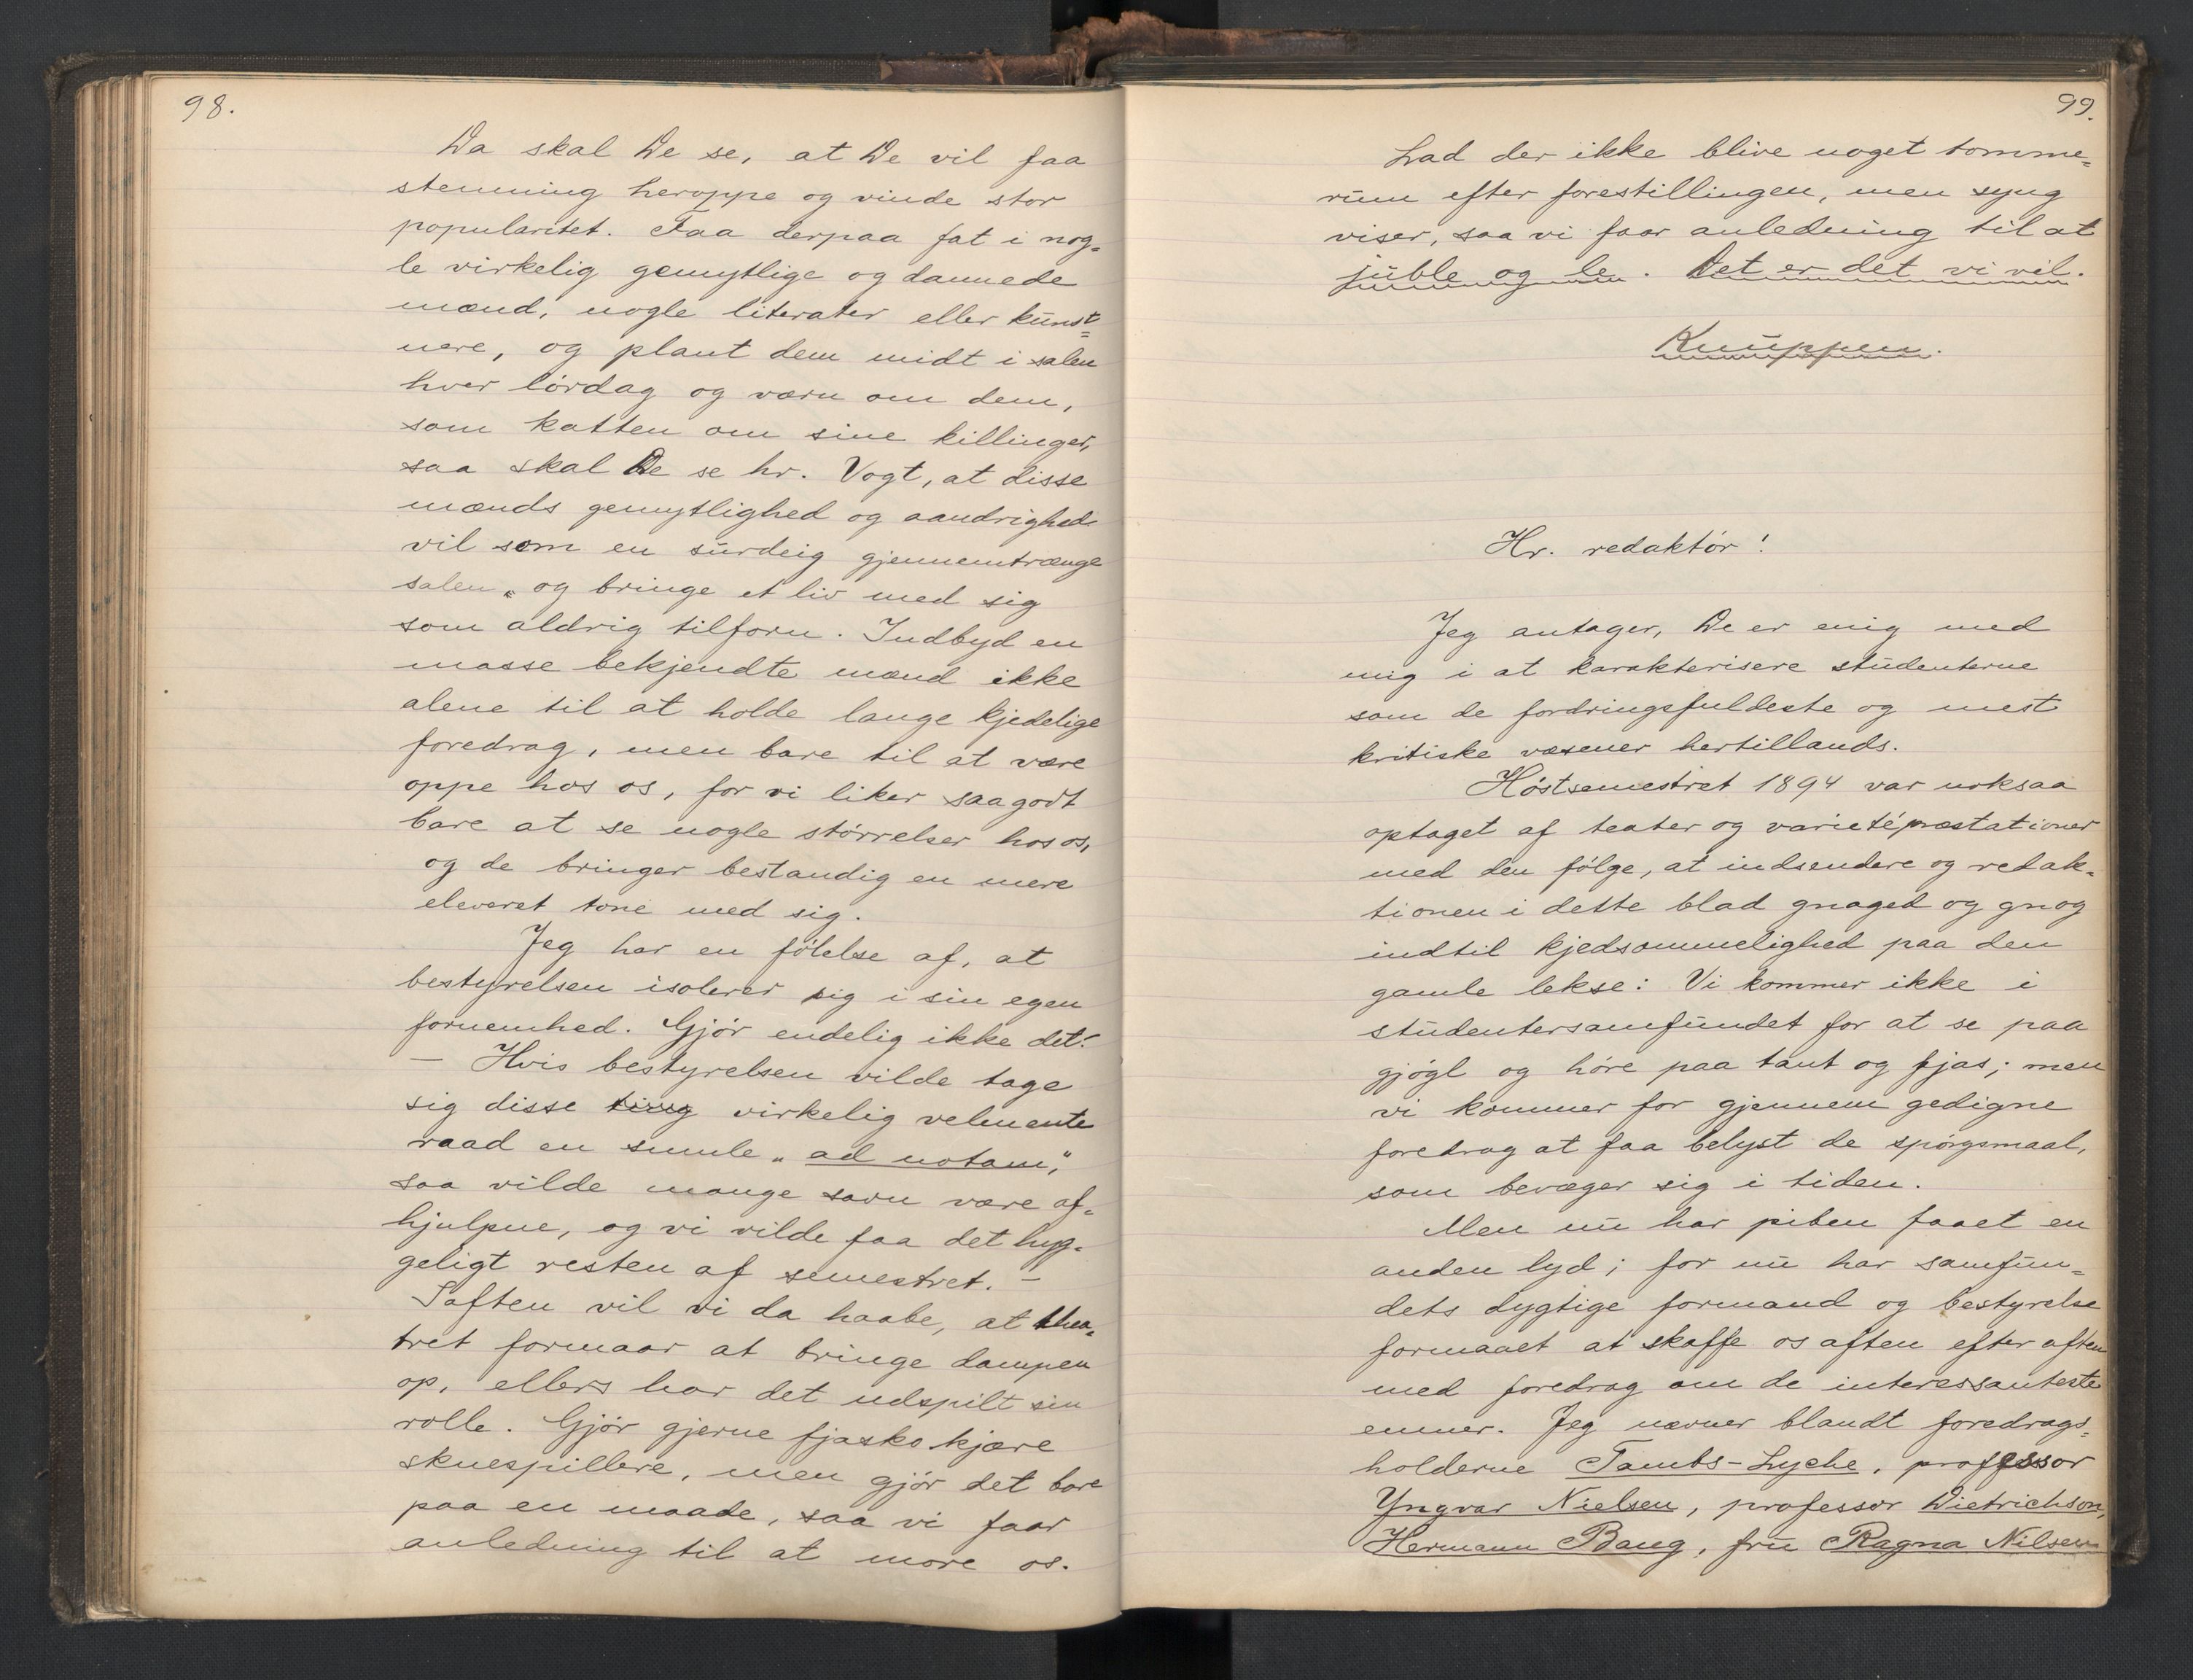 98.
Da skal De se, at De vil faa
stemning heroppe og vinde stor
popularitet. Faa derpaa fat i nog-
le virkelig gemytlige og dannede
mænd, nogle literater eller kunst=
nere, og plant dem midt i salen
hver lördag og værn om dem,
som katten om sine killinger,
saa skal De se hr. Vogt, at disse
mænds gemytlighed og aandrighed
vil som en surdeig gjennemtrænge
salen og bringe et liv med sig
som aldrig tilforn. Indbyd en
masse bekjendte mænd ikke
alene til at holde lange kjedelige
foredrag, men bare til at være
oppe hos os, for vi liker saa godt
bare at se nogle störrelser hos os,
og de bringer bestandig en mere
eleveret tone med sig.
Jeg har en fölelse af, at
bestyrelsen isolerer sig i sin egen
fornemhed. Gjör endelig ikke det!
— Hvis bestyrelsen vilde tage
sig disse ting virkelig velmente
raad en smule „ad notam",
saa vilde mange savn være af-
hjulpne, og vi vilde faa det hyg-
geligt resten af semestret. —
Iaften vil vi da haabe, at thea-
tret formaar at bringe dampen
op, ellers har det udspilt sin
rolle. Gjör gjerne fjasko kjære
skuespillere, men gjör det bare
paa en maade, saa vi faar
anledning til at more os.
99.
Lad der ikke blive noget tomme=
rum efter forestillingen, men syng
viser, saa vi faar anledning til at
juble og le. Det er det vi vil.
Knuppen.
Hr. redaktör!
Jeg antager, De er enig med
mig i at karakterisere studenterne
som de fordringsfuldeste og mest
kritiske væsener hertillands.
Höstsemestret 1894 var noksaa
optaget af teater og varietépræstationer
med den fölge, at indsendere og redak-
tionen i dette blad gnaged og gnog
indtil kjedsommelighed paa den
gamle lekse: Vi kommer ikke i
studentersamfundet for at se paa
gjögl og höre paa tant og fjas; men
vi kommer for gjennem gedigne
foredrag at faa belyst de spörgsmaal,
som bevæger sig i tiden.
Men nu har piben faaet en
anden lyd; for nu har samfun=
dets dygtige formand og bestyrelse
formaaet at skaffe os aften efter aften
med foredrag om de interessanteste
emner. Jeg nævner blandt foredrags=
holderne Tambs-Lyche, professor
Yngvar Nielsen, professor Dietrichson,
Hermann Bang, fru Ragna Nilsen